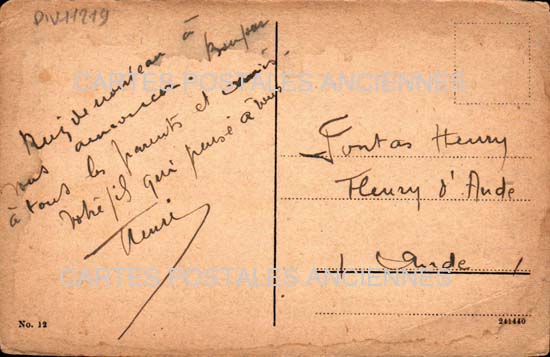 DIV11219
Rien de nouveau à
vous annoncer. Bonjour
à tous les parents et amis.
Votre fils qui pense à vous
Henri
Fontas Henry
Fleury d'Aude
Aude
CARTES POSTALES ANCIENNES
CARTES POSTALES ANCIENNES
No. 12
241440